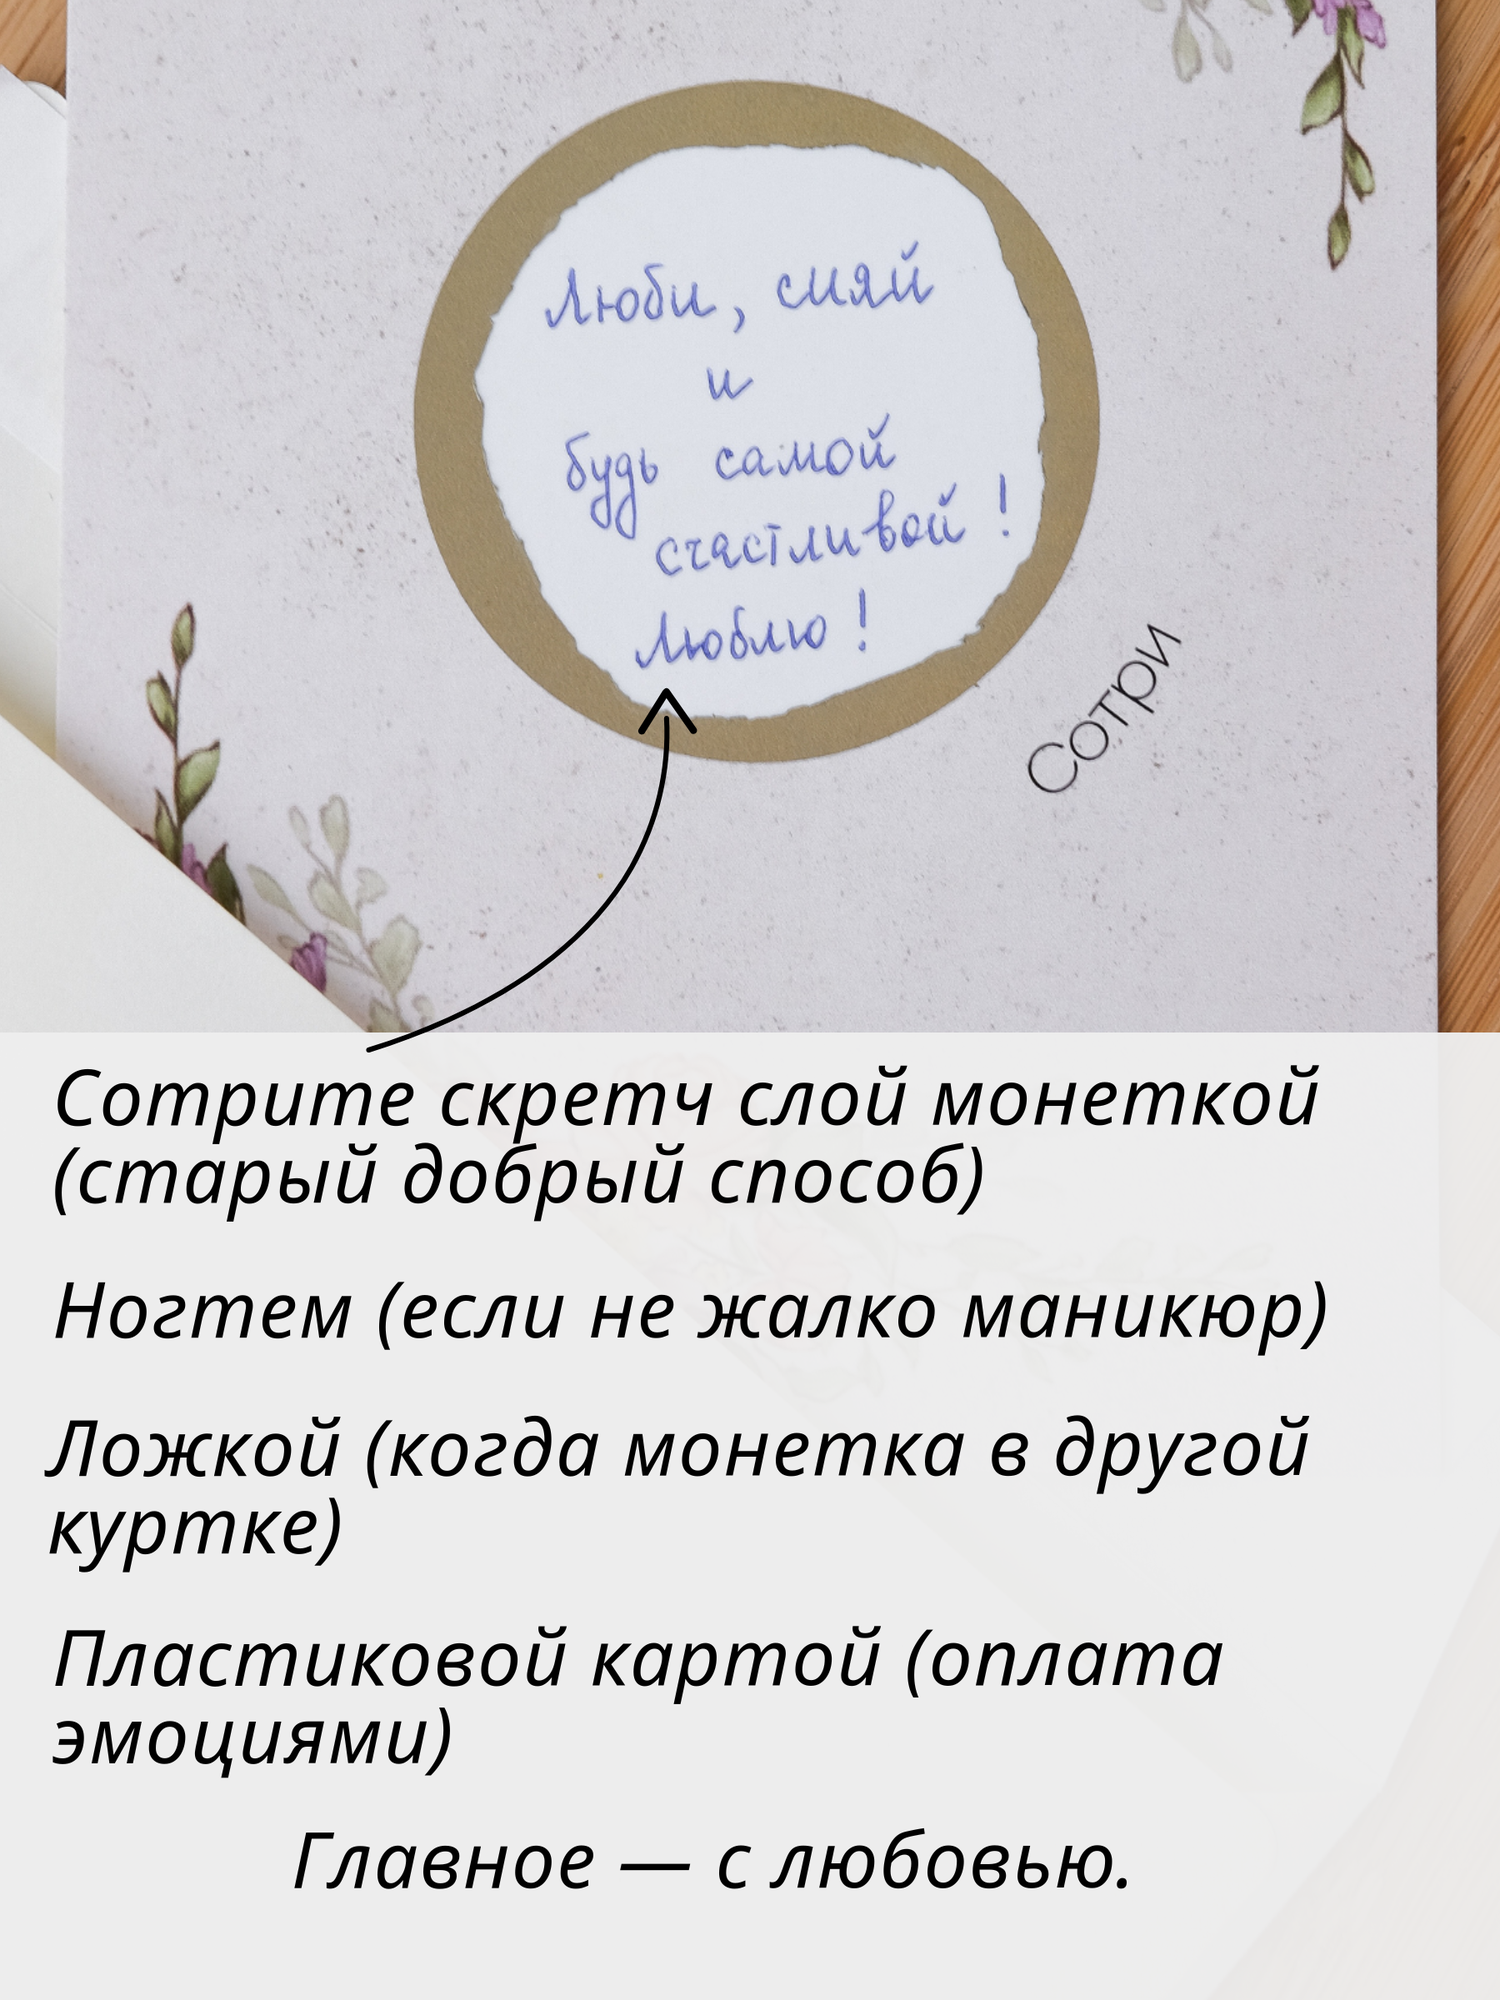 Люби, сияй
и
будь самой
счастливой !
Люблю !
Сотри
Сотрите скретч слой монеткой
(старый добрый способ)
Ногтем (если не жалко маникюр)
Ложкой (когда монетка в другой
куртке)
Пластиковой картой (оплата
эмоциями)
Главное — с любовью.